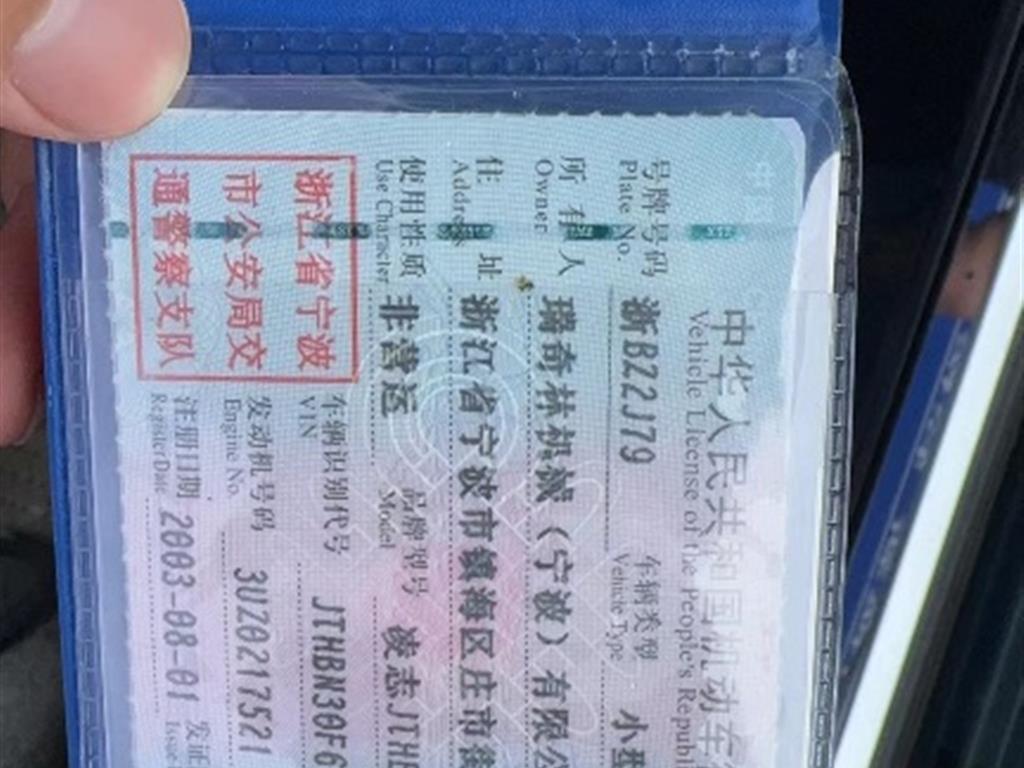 中华人民共和国机动车
Vehicle License of the People's Republ
号牌号码 浙BZ2J79 车辆类型 小型
Plate No. Vehicle Type
所有人 璐奇林机械(宁波)有限公
Owner
住址 浙江省宁波市镇海区庄市街
Address
使用性质 非营运 品牌型号 凌志JTHB
Use Character Model
浙江省宁波
市公安局交
通警察支队
车辆识别代号 JTHBN30F6
VIN
发动机号码 3UZ0217521
Engine No.
注册日期 2003-08-01 发证
Register Date Issue